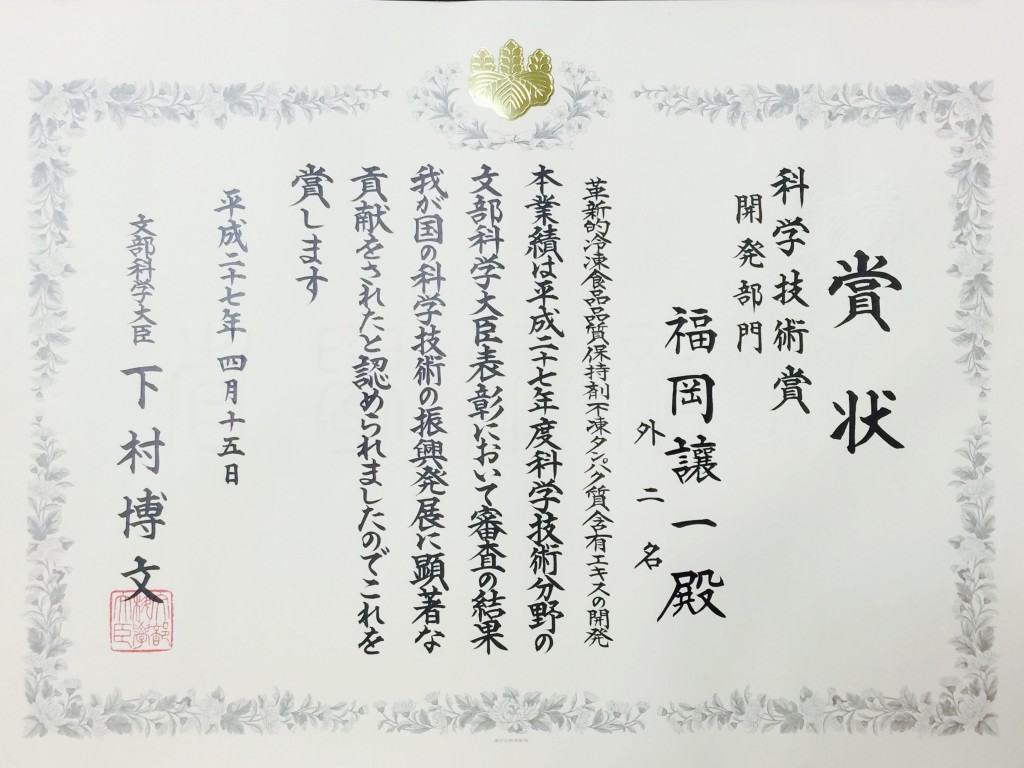 賞状
科学技術賞
開発部門
福岡譲一殿
外二名
革新的冷凍食品品質保持剤不凍タンパク質含有エキスの開発
本業績は平成二十七年度科学技術分野の
文部科学大臣表彰において審査の結果
我が国の科学技術の振興発展に顕著な
貢献をされたと認められましたのでこれを
賞します
平成二十七年四月十五日
文部科学大臣 下村博文